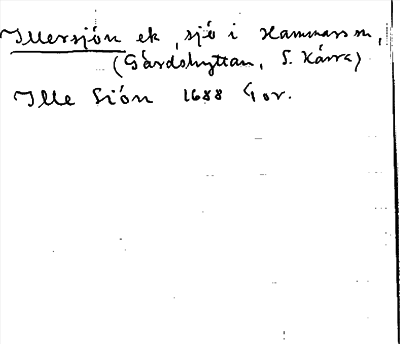 Illersjön ek, sjö i Hammars sn,
(Gårdshyttan, S. Kärra)
Ille Siön 1688 Gor.